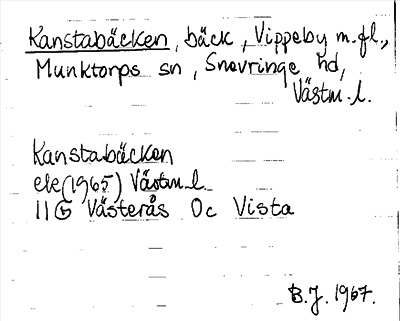 Kanstabäcken, bäck, Vippeby m.fl.,
Munktorps sn, Snevringe hd,
Västm.l.
Kanstabäcken
ele(1965) Västm.l.
11G Västerås Oc Vista
B.J. 1967.